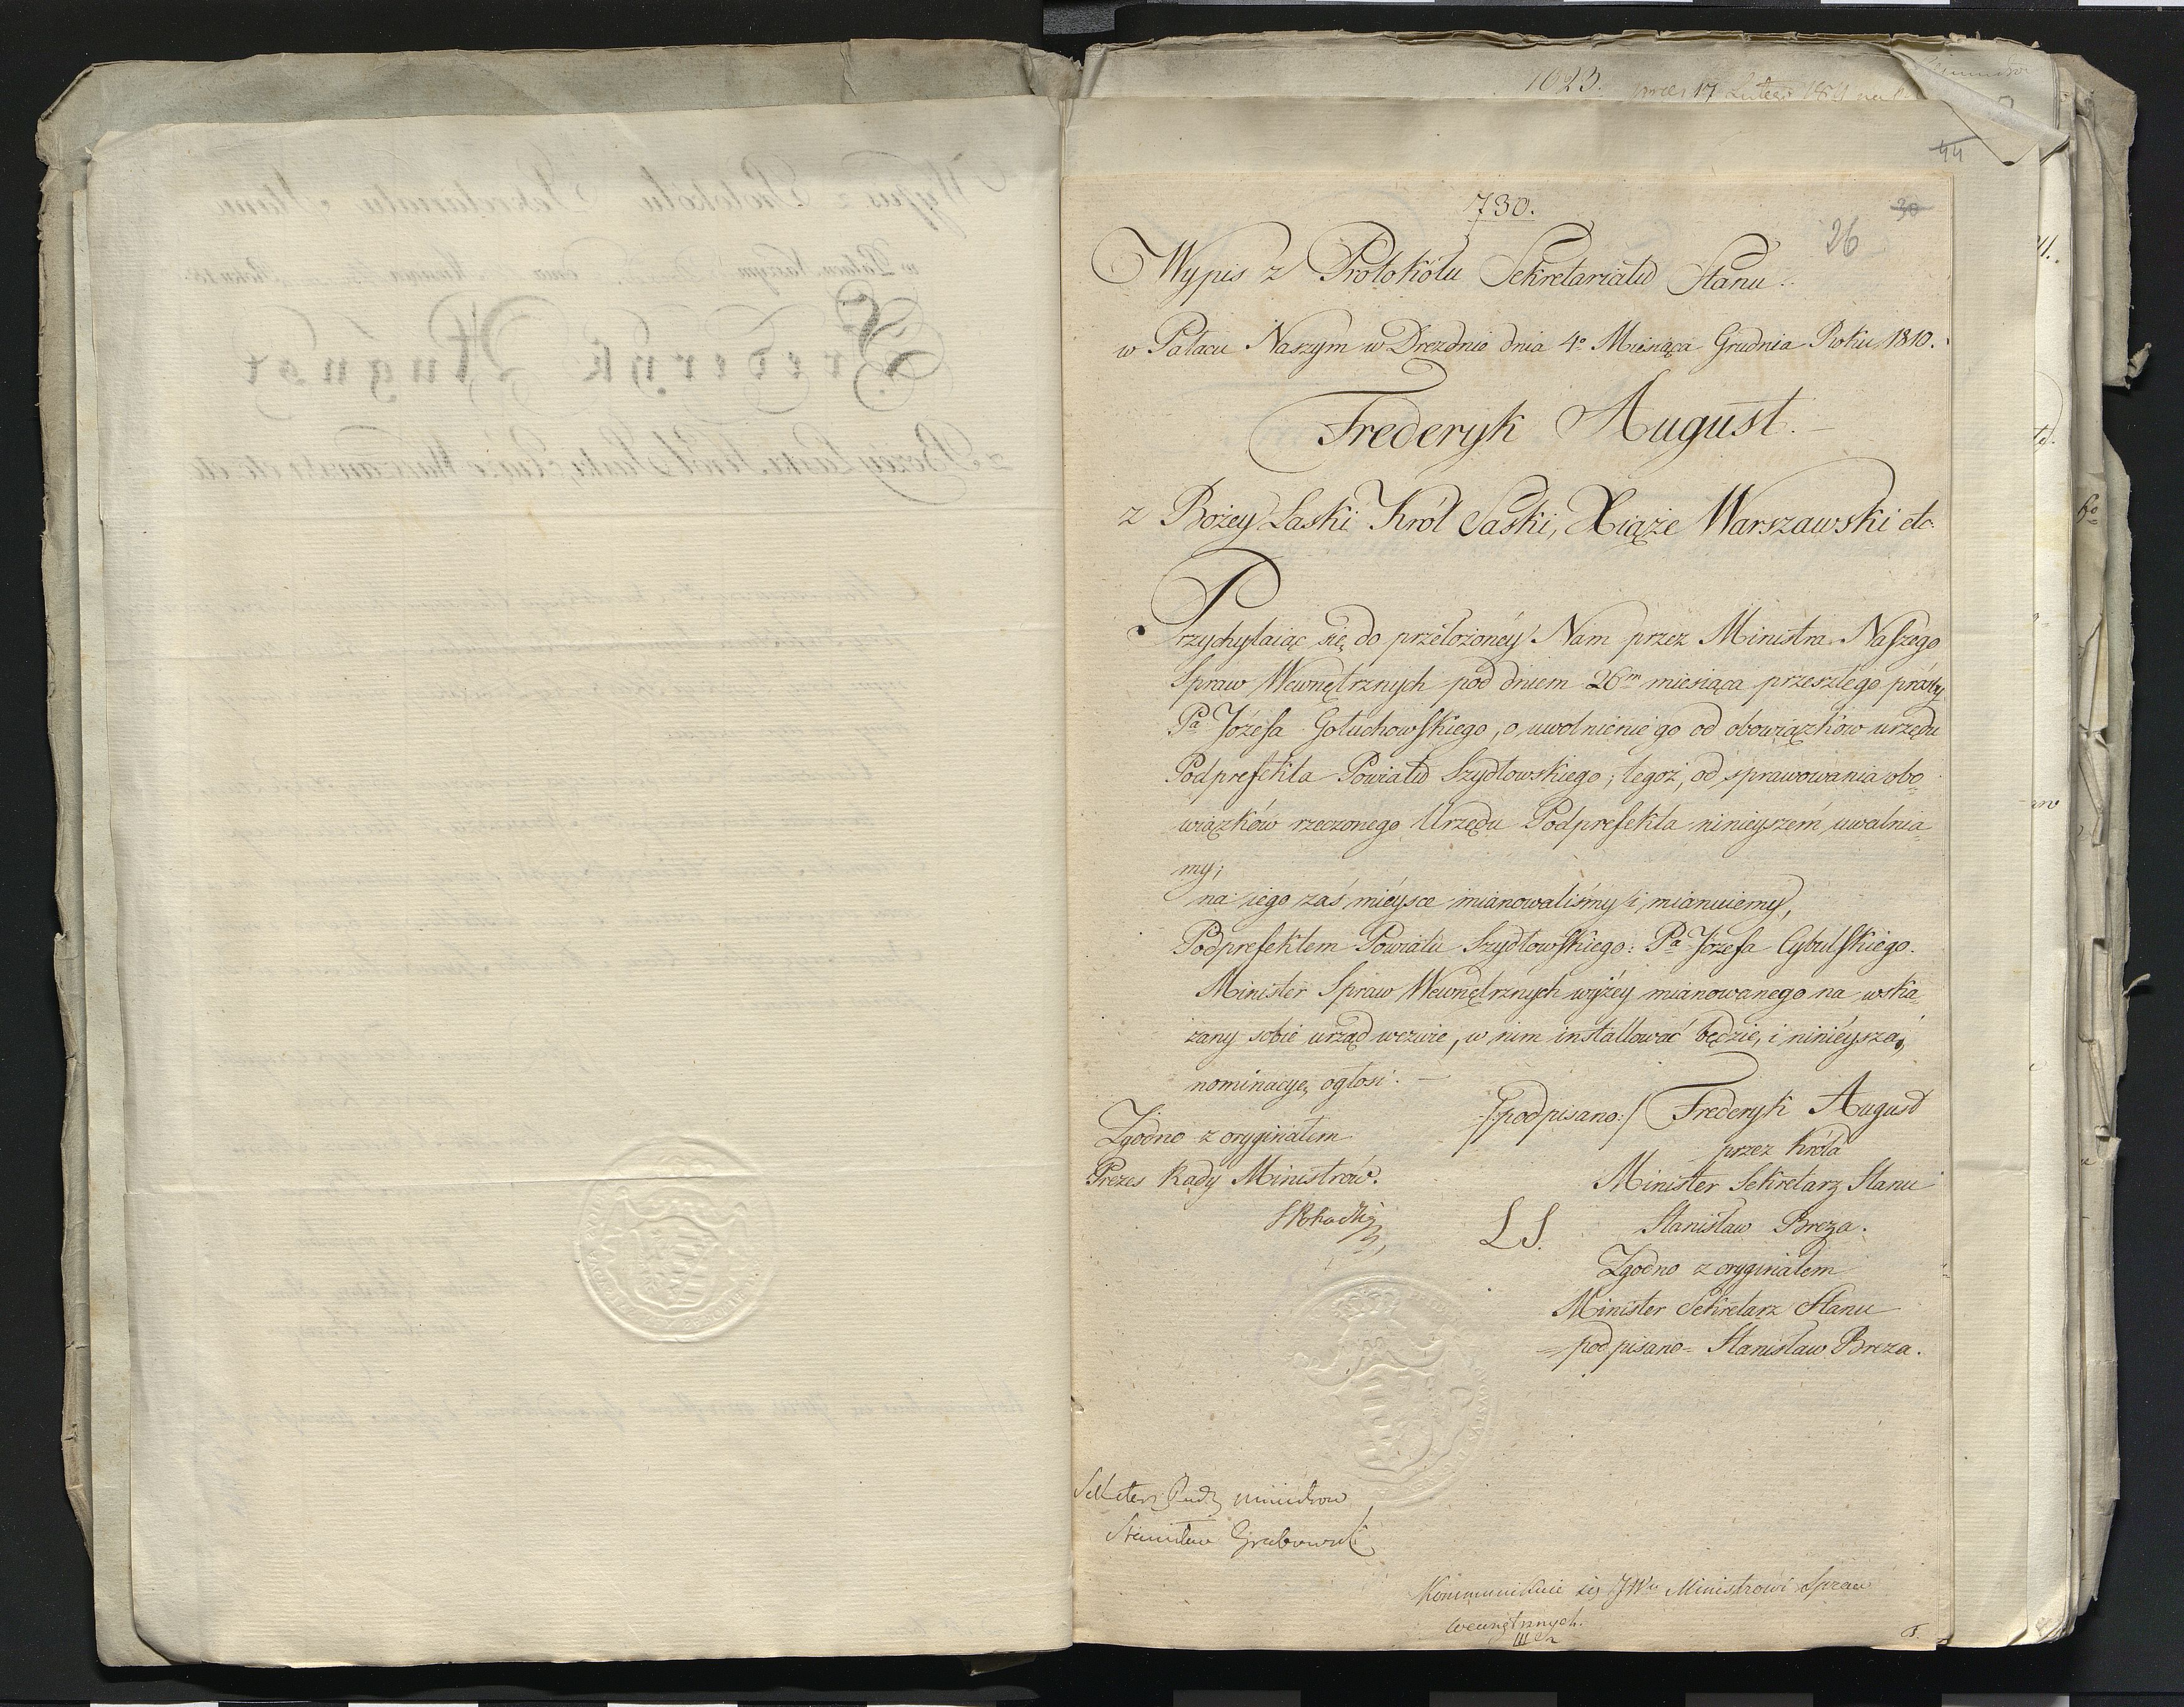 1023.
44
730.
30
26
Wypis z Protokółu Sekretariatu Stanu.
w Pałacu Naszym w Dreznie dnia 4º Miesiąca Grudnia Roku 1810.
Frederyk August.
z Bożey Łaski Król Saski, Xiąże Warszawski etc.
Przychylaiąc się do przełożonéy Nam przez Ministra Naszego
Spraw Wewnętrznych pod dniem 26m miesiąca przeszłego prośby
Pa Józefa Gołuchowskiego, o uwolnienie go od obowiązków urzędu
Podprefekta Powiatu Szydłowskiego; tegoż, od sprawowania obo=
wiązków rzeczonego Urzędu Podprefekta ninieyszém uwalnia=
my;
na iego zaś mieysce mianowaliśmy i mianuiemy,
Podprefektem Powiatu Szydłowskiego: Pa Józefa Cybulskiego.
Minister Spraw Wewnętrznych wyżéy mianowanego na wska=
zany sobie urząd wezwie, w nim installować będzie, i ninieyszą
nominacyę ogłosi. —
/:podpisano:/ Frederyk August
przez Króla
Minister Sekretarz Stanu
LS. Stanisław Breza.
Zgodno z oryginałem
Minister Sekretarz Stanu
=podpisano= Stanisław Breza.
Zgodno z oryginałem
Prezes Rady Ministrów.
Sekretarz Rady Ministrow
Stanisław Grabowski
Kommunikuie się JWu Ministrowi Spraw
wewnętrznych.